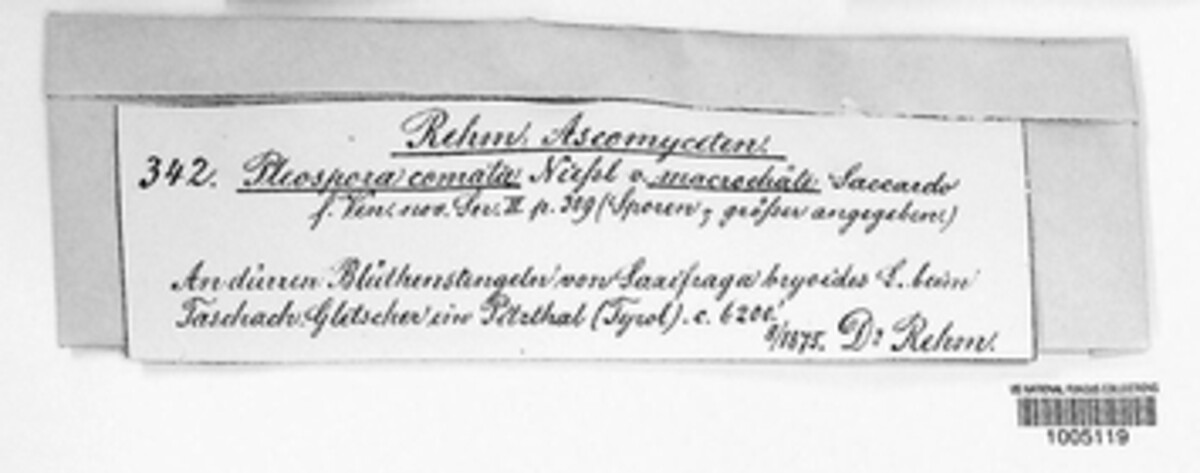 Rehm. Ascomyceten.
342. Pleospora comata Niessl v. macrochäta Saccardo
f. Ven. nov. Ser. II p. 319 (Sporen größer angegeben!)
An dürren Blüthenstengeln von Saxifraga bryoides L. beim
Taschach-Gletscher im Pitzthal (Tyrol). c. 6200'.
8/1875. Dr Rehm.
US NATIONAL FUNGUS COLLECTIONS
1005119